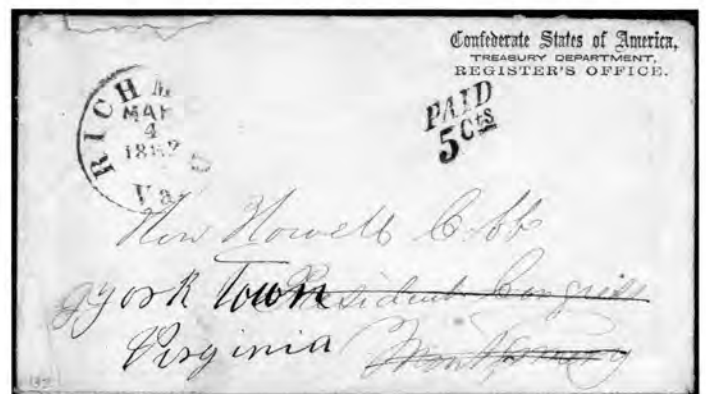 Confederate States of America,
TREASURY DEPARTMENT,
REGISTER'S OFFICE.
RICH
MAR
4
Va
PAID
5 Cts
Hon Howell Cobb
York Town President Congress
Virginia Montgomery